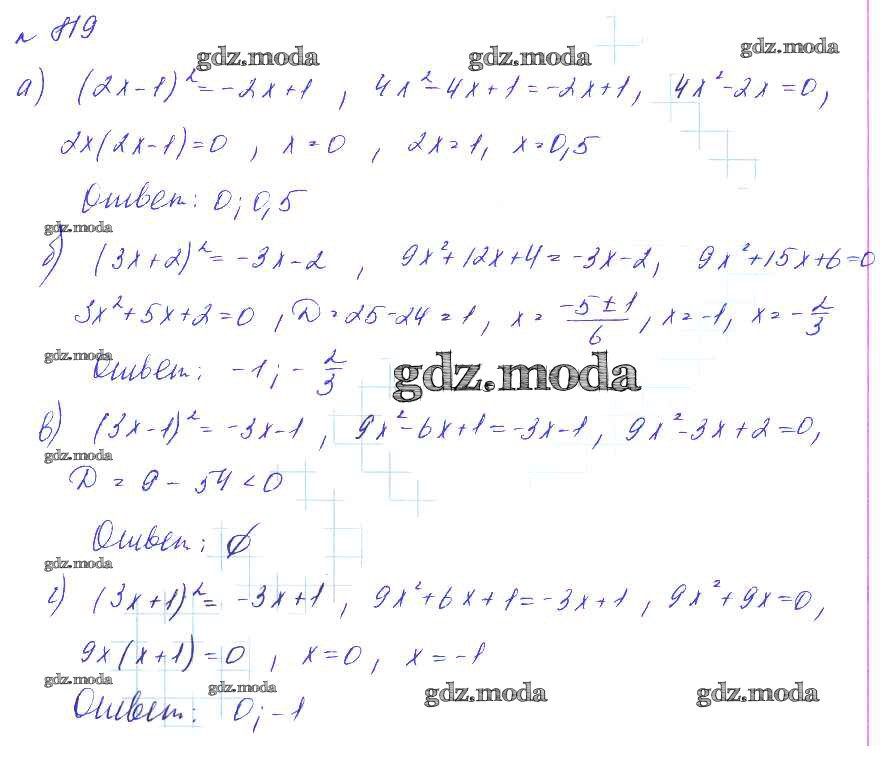 № 819
gdz.moda gdz.moda gdz.moda
а) (2x-1)² = -2x+1 , 4x²-4x+1=-2x+1, 4x²-2x=0,
2x(2x-1)=0 , x=0 , 2x=1, x=0,5
Ответ: 0; 0,5
gdz.moda
б) (3x+2)² = -3x-2 , 9x²+12x+4=-3x-2, 9x²+15x+6=0
3x²+5x+2=0 , D=25-24=1, x= (-5±1)/6 , x=-1, x=-2/3
gdz.moda
Ответ: -1; -2/3 gdz.moda
в) (3x-1)² = -3x-1 , 9x²-6x+1=-3x-1 , 9x²-3x+2=0,
gdz.moda
D = 9 - 54 < 0
Ответ: ∅
gdz.moda
г) (3x+1)² = -3x+1 , 9x²+6x+1=-3x+1 , 9x²+9x=0,
9x(x+1)=0 , x=0 , x=-1
gdz.moda gdz.moda gdz.moda gdz.moda
Ответ: 0; -1